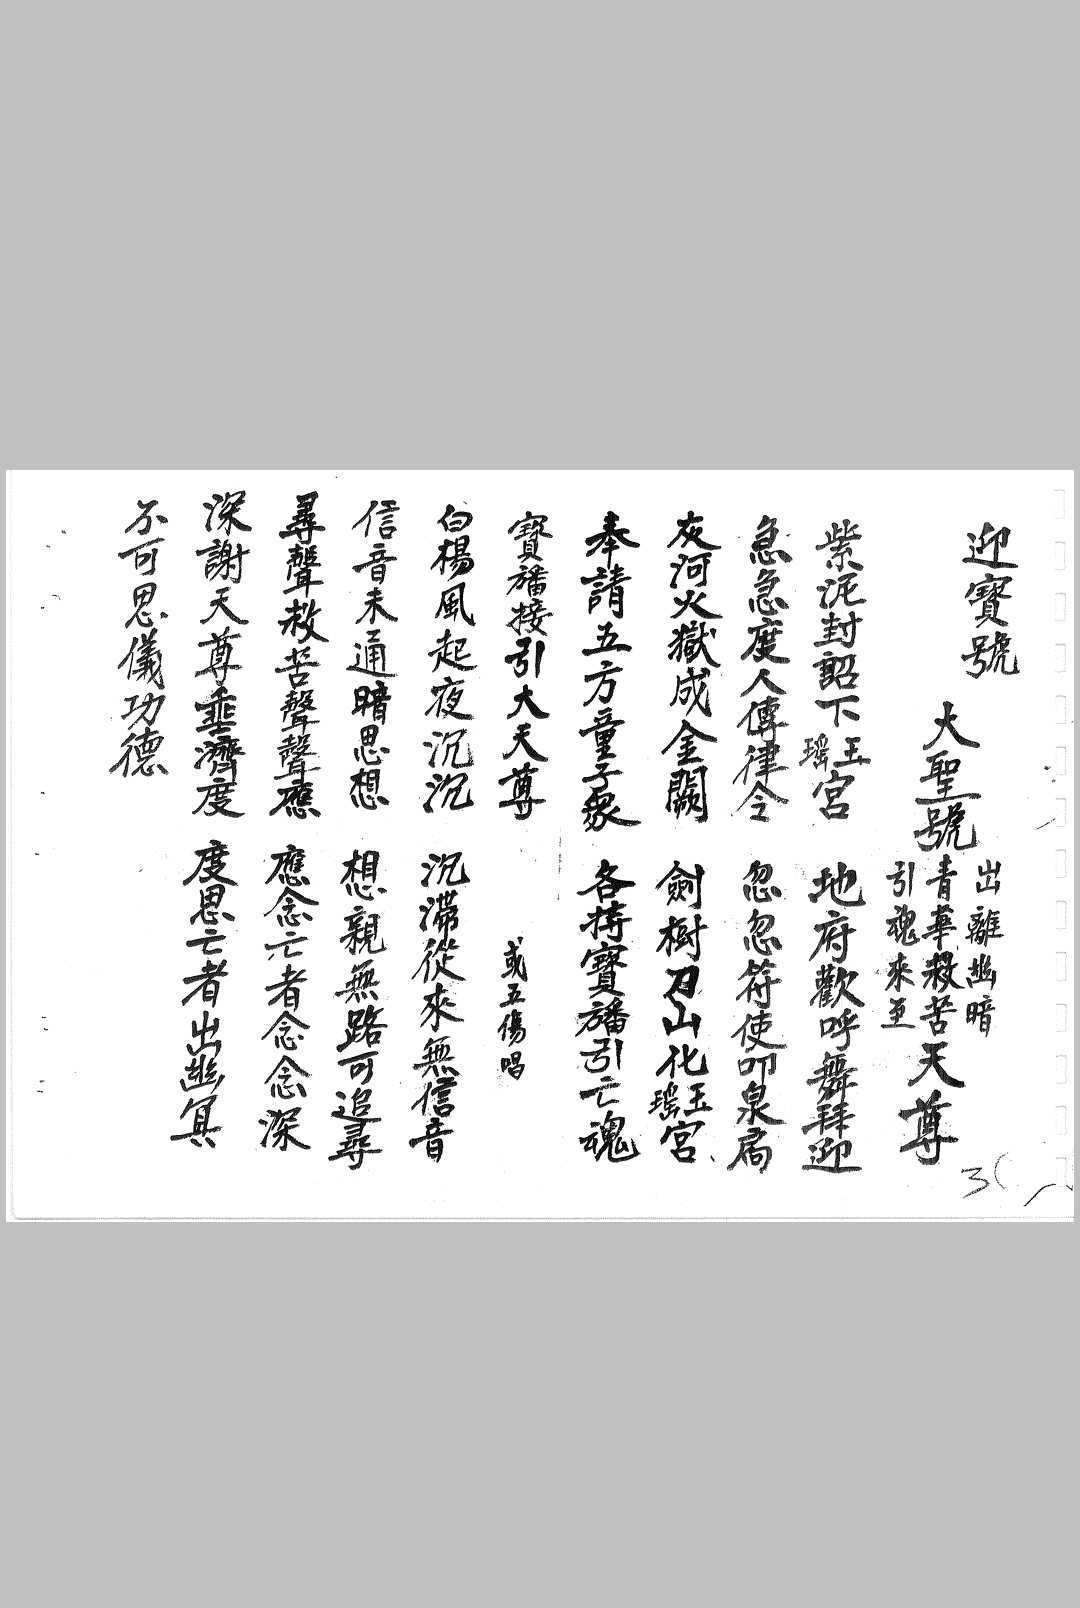 迎寶號
大聖號 出離幽暗 青華救苦 引魂來至 天尊
紫泥封詔下玉瑶宮 地府歡呼舞拜迎
急急度人傳律令 忽忽符使叩泉扃
灰河火獄成金闕 劍樹刀山化玉瑶宮
奉請五方童子衆 各持寶旛引亡魂
寶旛接引大天尊 或五傷唱
白楊風起夜沉沉 沉滯從來無信音
信音未通暗思想 想親無路可追尋
尋聲救苦聲聲應 應念亡者念念深
深謝天尊垂濟度 度思亡者出幽冥
不可思儀功德
3